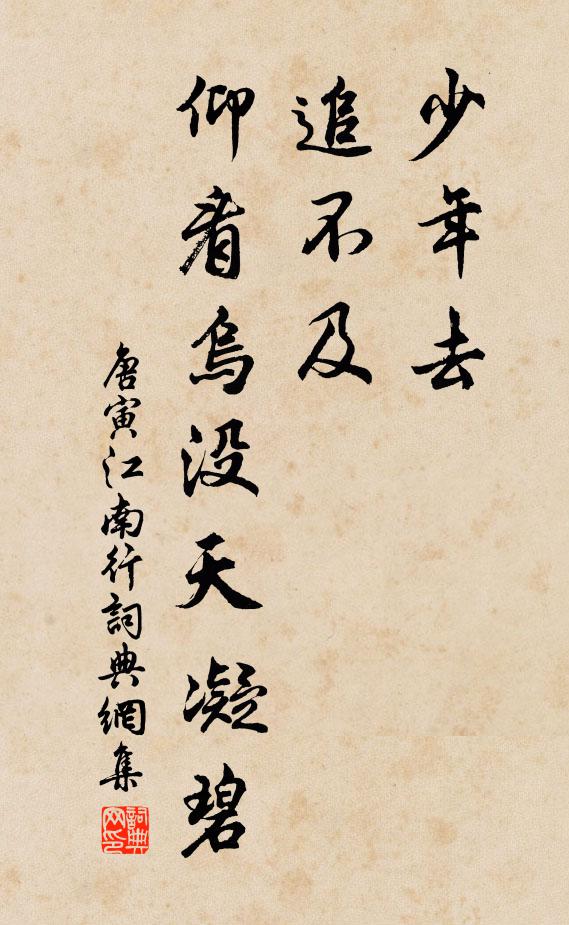 少年去
追不及
仰看烏没天凝碧
唐寅江南行詞典網集
詞典网印